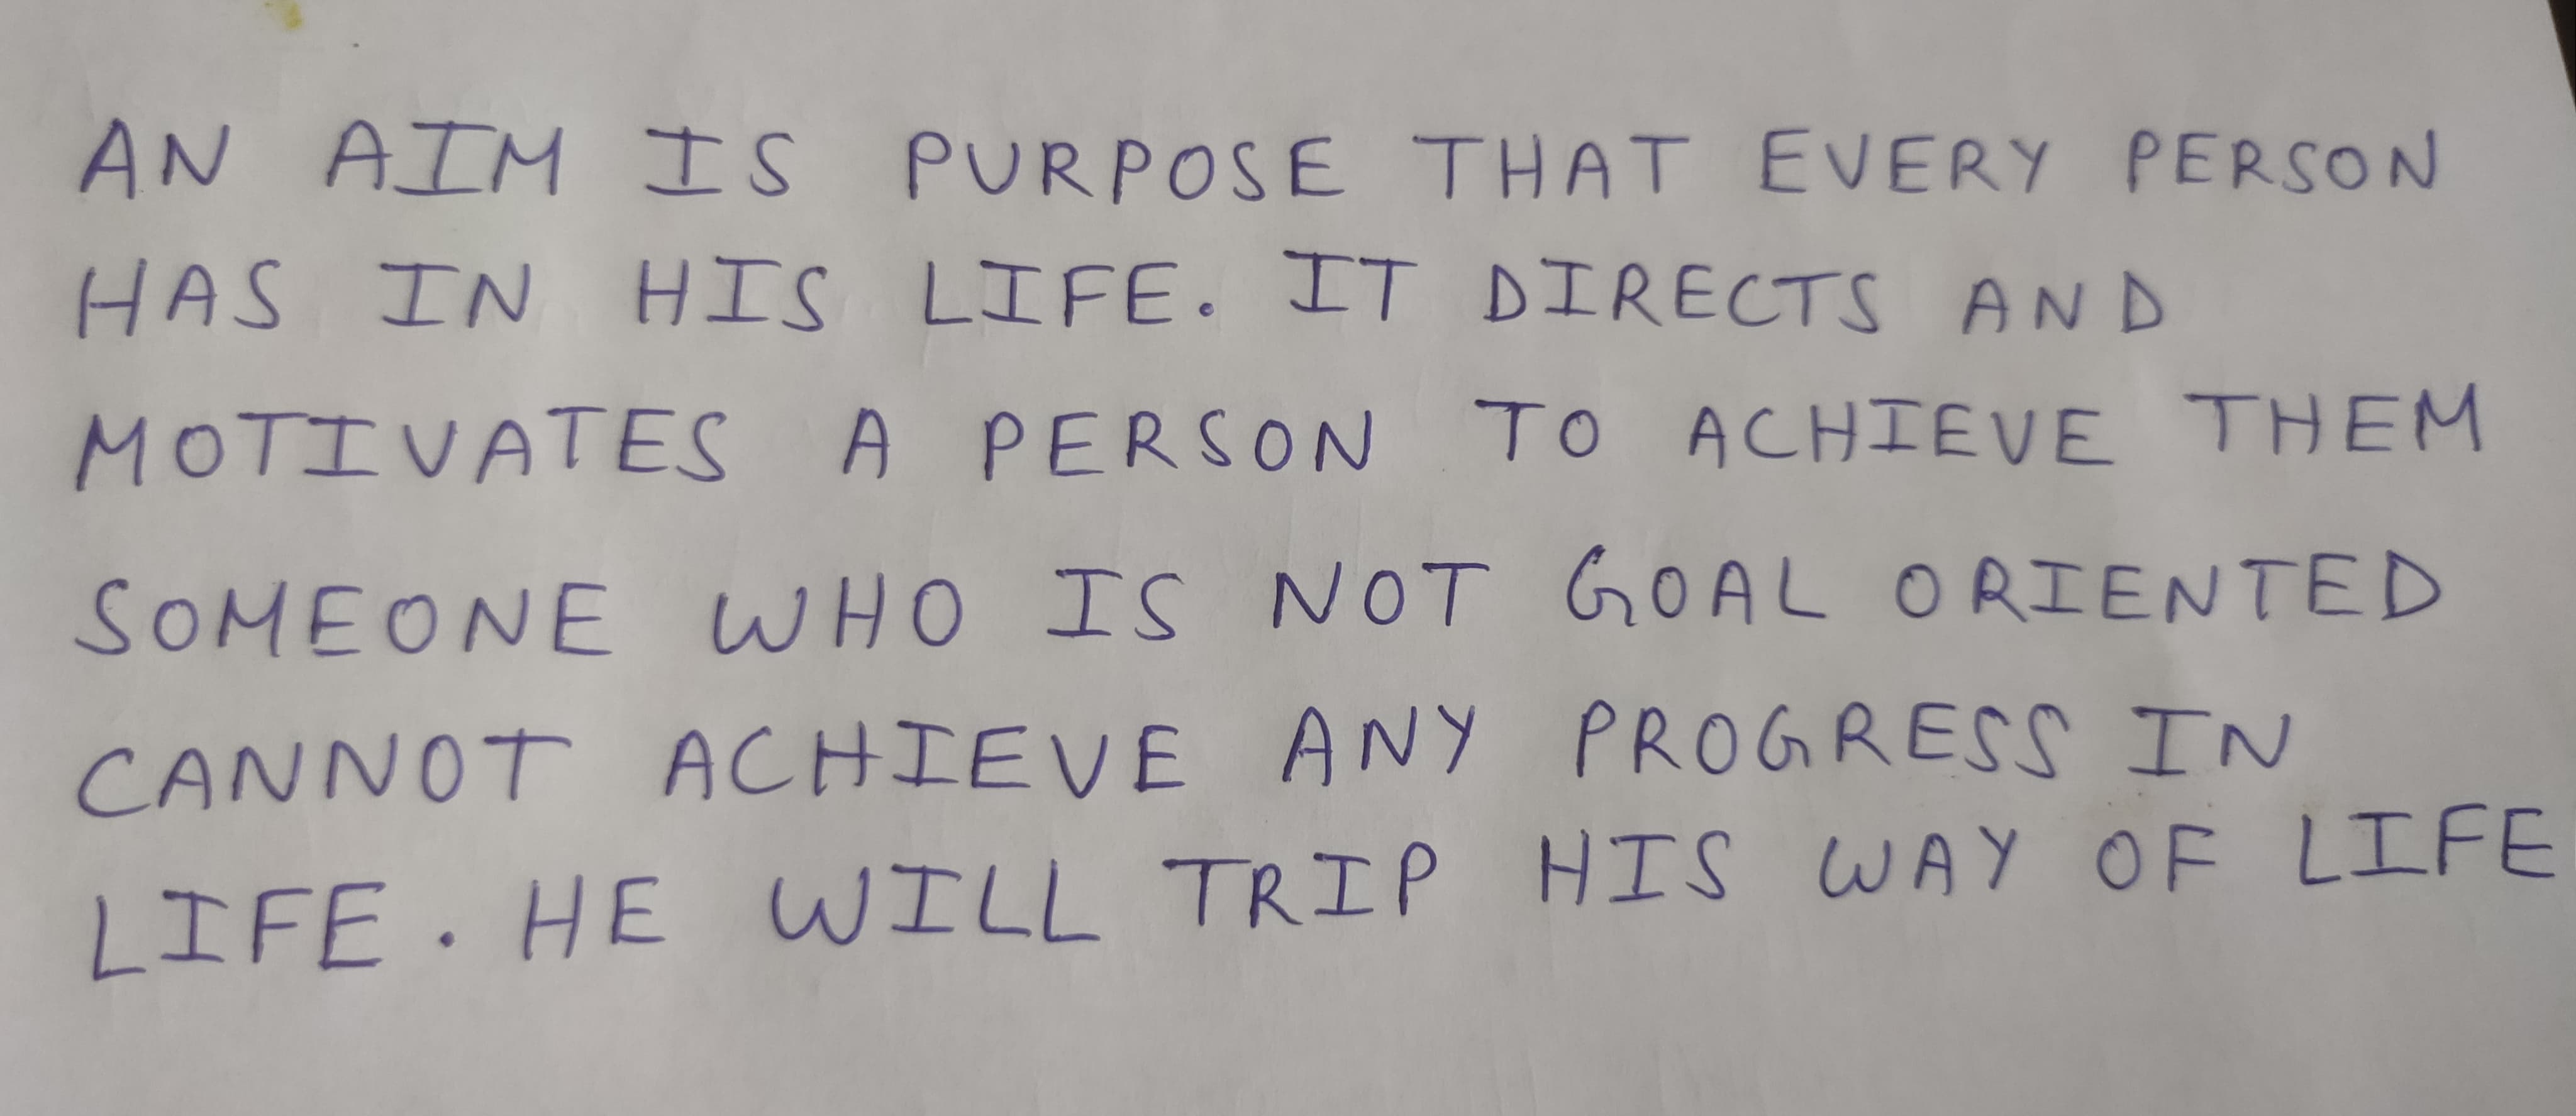 AN AIM IS PURPOSE THAT EVERY PERSON
HAS IN HIS LIFE. IT DIRECTS AND
MOTIVATES A PERSON TO ACHIEVE THEM
SOMEONE WHO IS NOT GOAL ORIENTED
CANNOT ACHIEVE ANY PROGRESS IN
LIFE. HE WILL TRIP HIS WAY OF LIFE